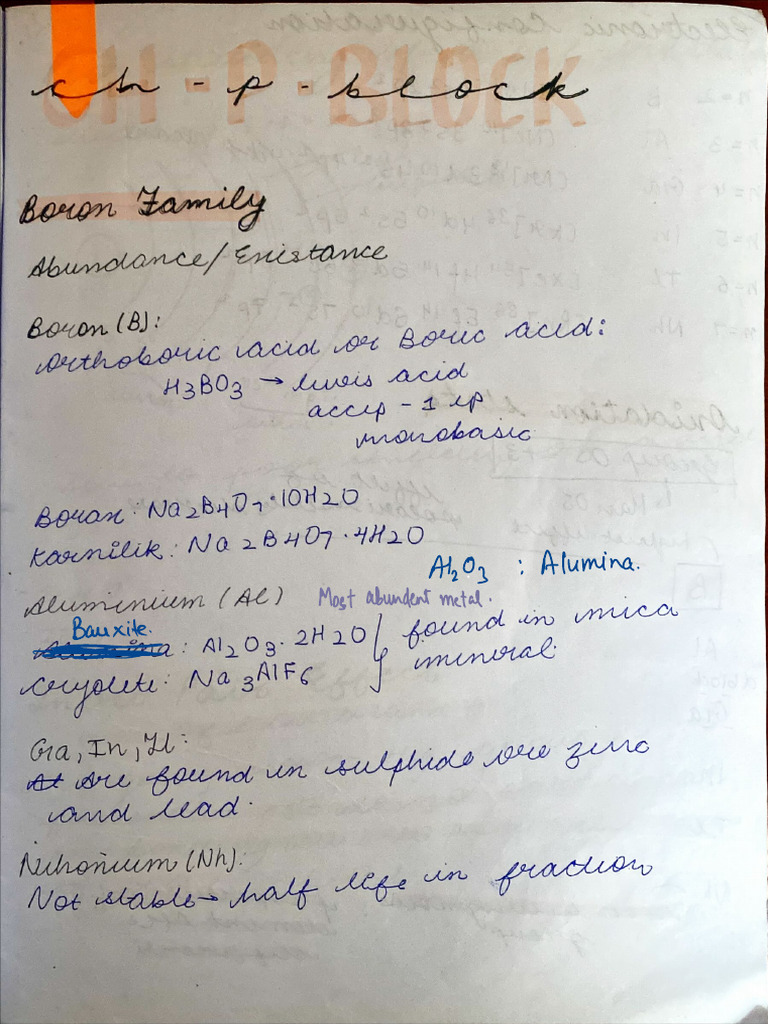 CH - P - BLOCK
ch - p - block
Boron Family
Abundance/Existance
Boron (B):
Orthoboric acid or Boric acid:
H3BO3 → lewis acid
accep - 1 lp
monobasic
Borax: Na2B4O7·10H2O
Karnilik: Na2B4O7·4H2O
Al2O3 : Alumina.
Aluminium (Al) Most abundent metal.
Bauxite.
: Al2O3·2H2O } found in mica
Cryolete: Na3AlF6 mineral.
Ga, In, Tl:
Are found in sulphide ore zinc
and lead.
Nihonium (Nh):
Not stable → half life in fraction